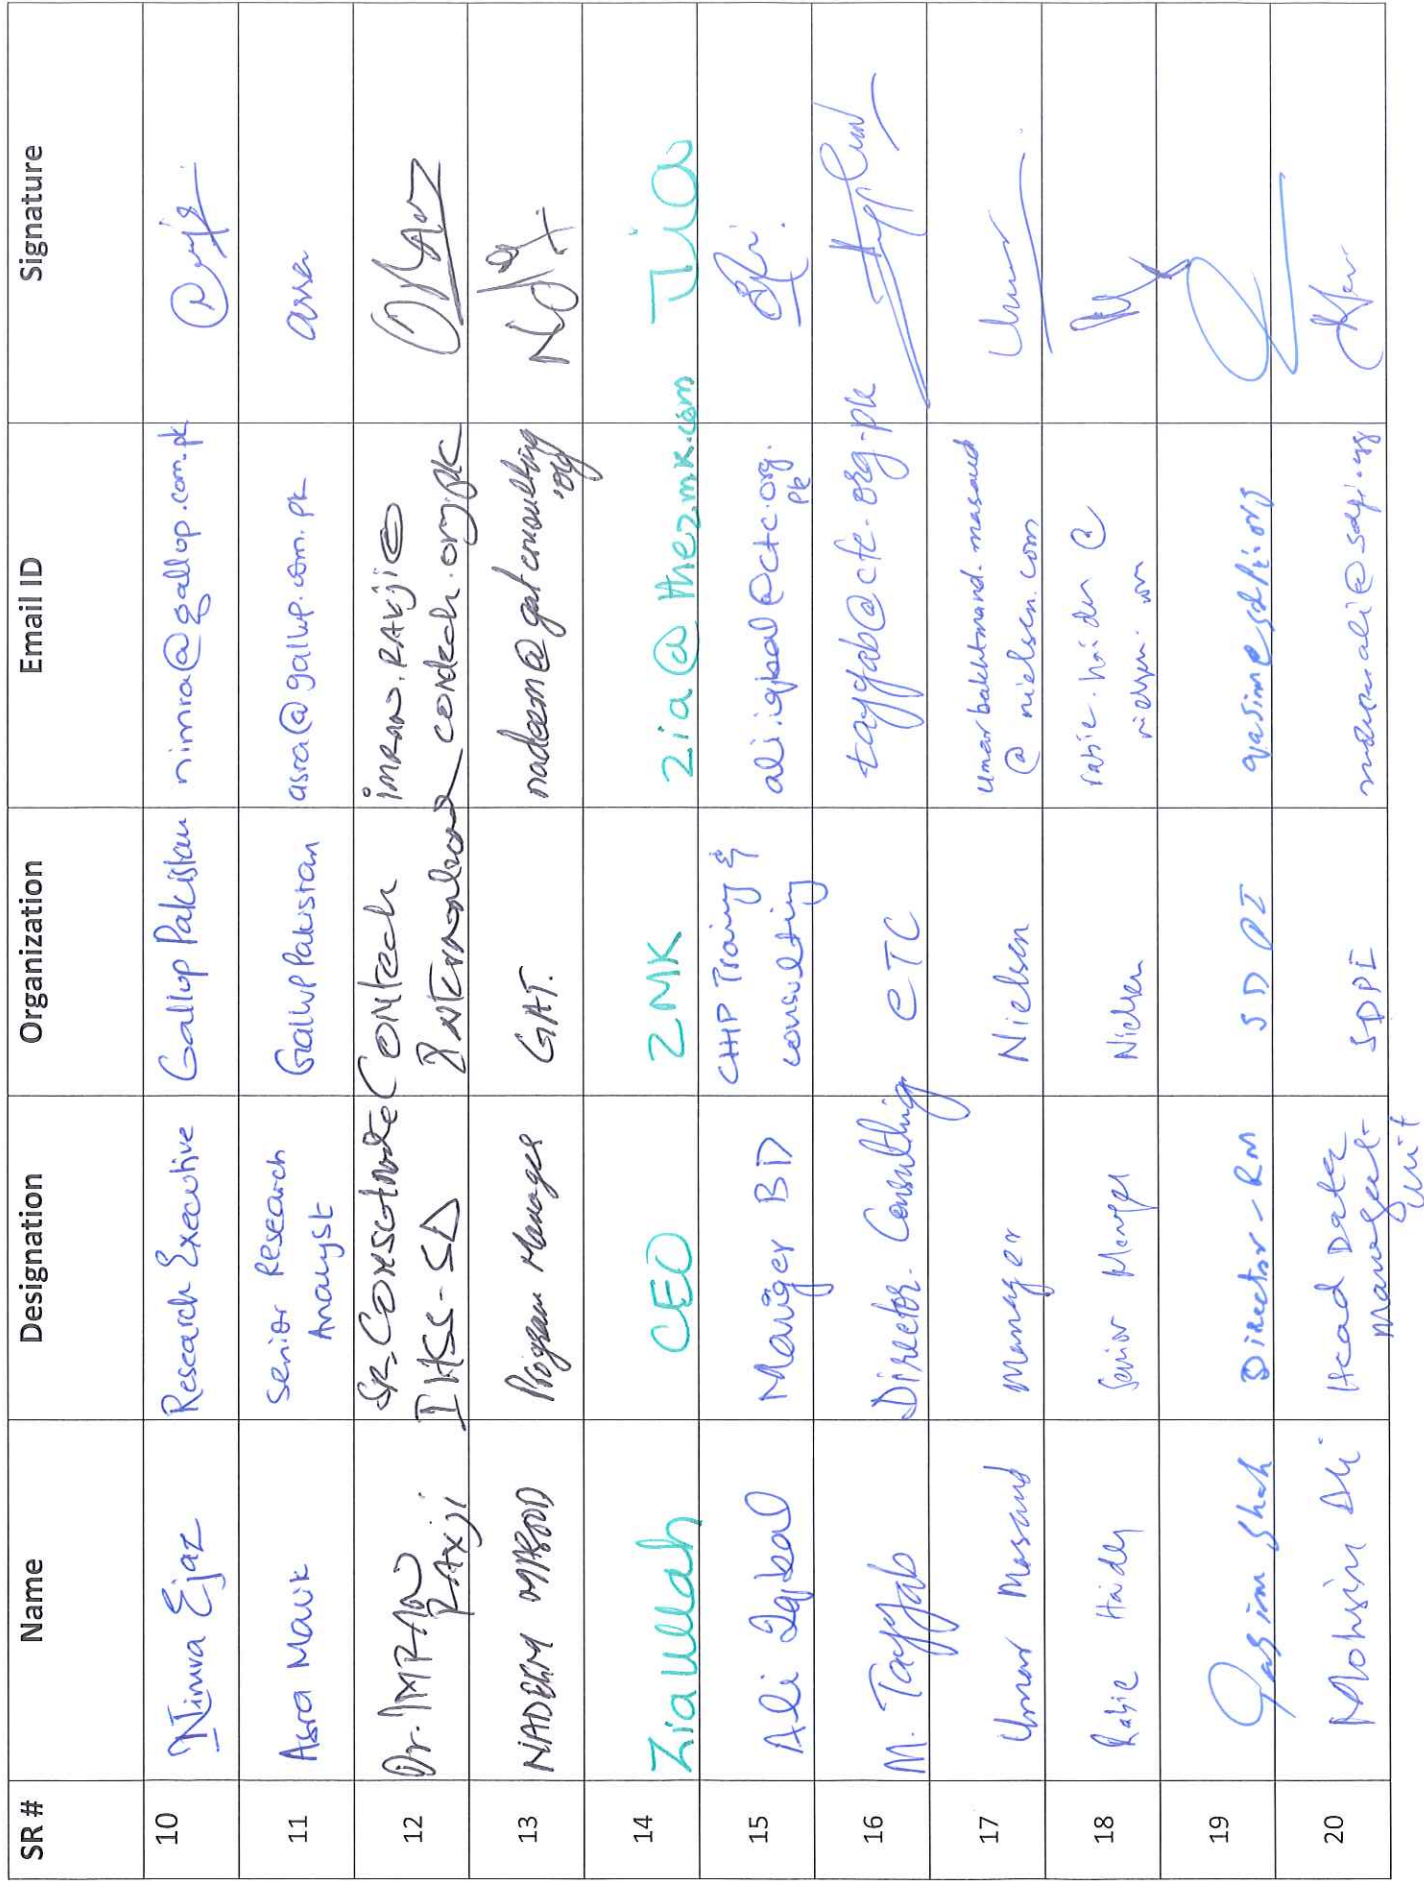 SR # Name Designation Organization Email ID Signature
10 Nimra Ejaz Research Executive Gallup Pakistan nimra@gallup.com.pk
11 Asra Malik Senior Research Gallup Pakistan asra@gallup.com.pk asra
Analyst
12 Dr. IMRAN Sr. Consultant Contech IMRAN.RAKJI@
RAxji IHSS-SD International contech.org.pk
13 NADEEM MASOOD Program Manager GAT. nadeem@gatconsulting
.org
14 Ziaullah CEO ZMK zia@thezmk.com Zia
15 Ali Iqbal Manager BD CHIP Traing & ali.iqbal@ctc.org.
consulting pk
16 M. Tayyab Director-Consulting CTC tayyab@ctc.org.pk
17 Umar Masaud Manager Nielsen umarbakhtmand.masaud
@nielsen.com
18 Rabie Haider Senior Manager Nielsen rabie.haider@
nielsen.com
19 Qasim Shah Director-RM SDPI qasim@sdpi.org
20 Mohsin Ali Head Data SDPI
Managet-
Unit